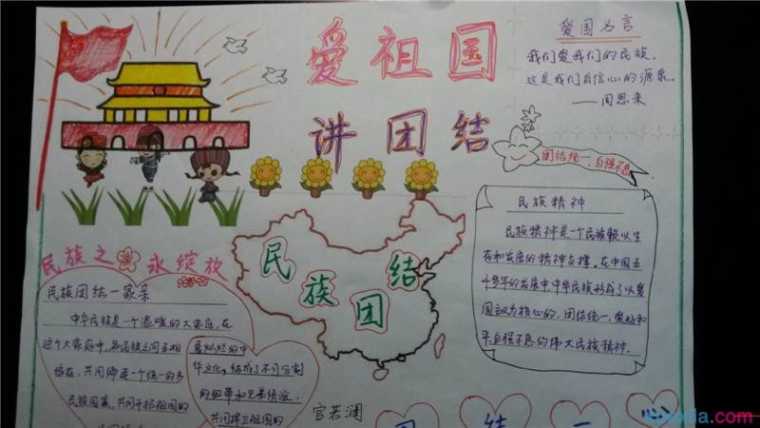 爱祖国
讲团结
爱国名言
我们爱我们的民族,
这是我们自信心的源泉。
——周恩来
团结统一,自强不息
民族精神
民族精神是一个民族赖以生
存和发展的精神支撑。在中国五
千多年的发展中,中华民族形成了以爱
国主义为核心的,团结统一、爱好和
平、自强不息的伟大民族精神.
民族之花永绽放
民族团结
民族团结一家亲
中华民族是一个温暖的大家庭,在
这个大家庭中,各民族之间互相
共同缔造一个统一的多
民族国家,共同
华文化,结成了不可分割
的纽带和
共同捍卫祖国的
宫若澜
团结一心